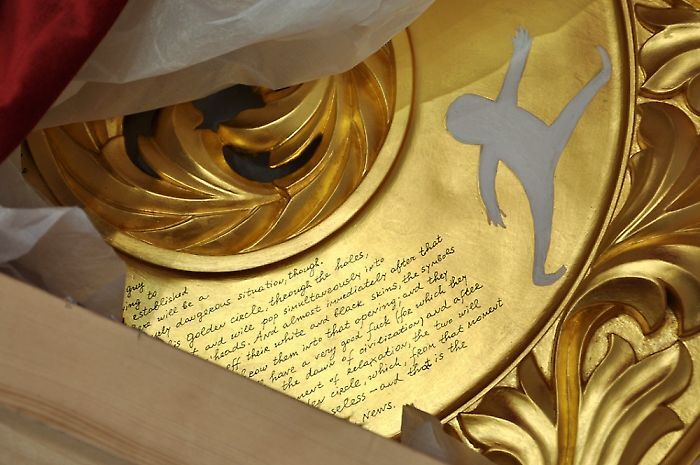 guy
ing to
established
ere will be a
dangerous situation, though.
is golden circle, through the holes,
and will pop simultaneously into
heads. And almost immediately after that
off their white and black skins, the symbols
them into that opening, and they
have a very good fuck (for which they
the dawn of civilization) and after
ment of relaxation, the two will
circle, which, from that moment
seless — and that is the
News.